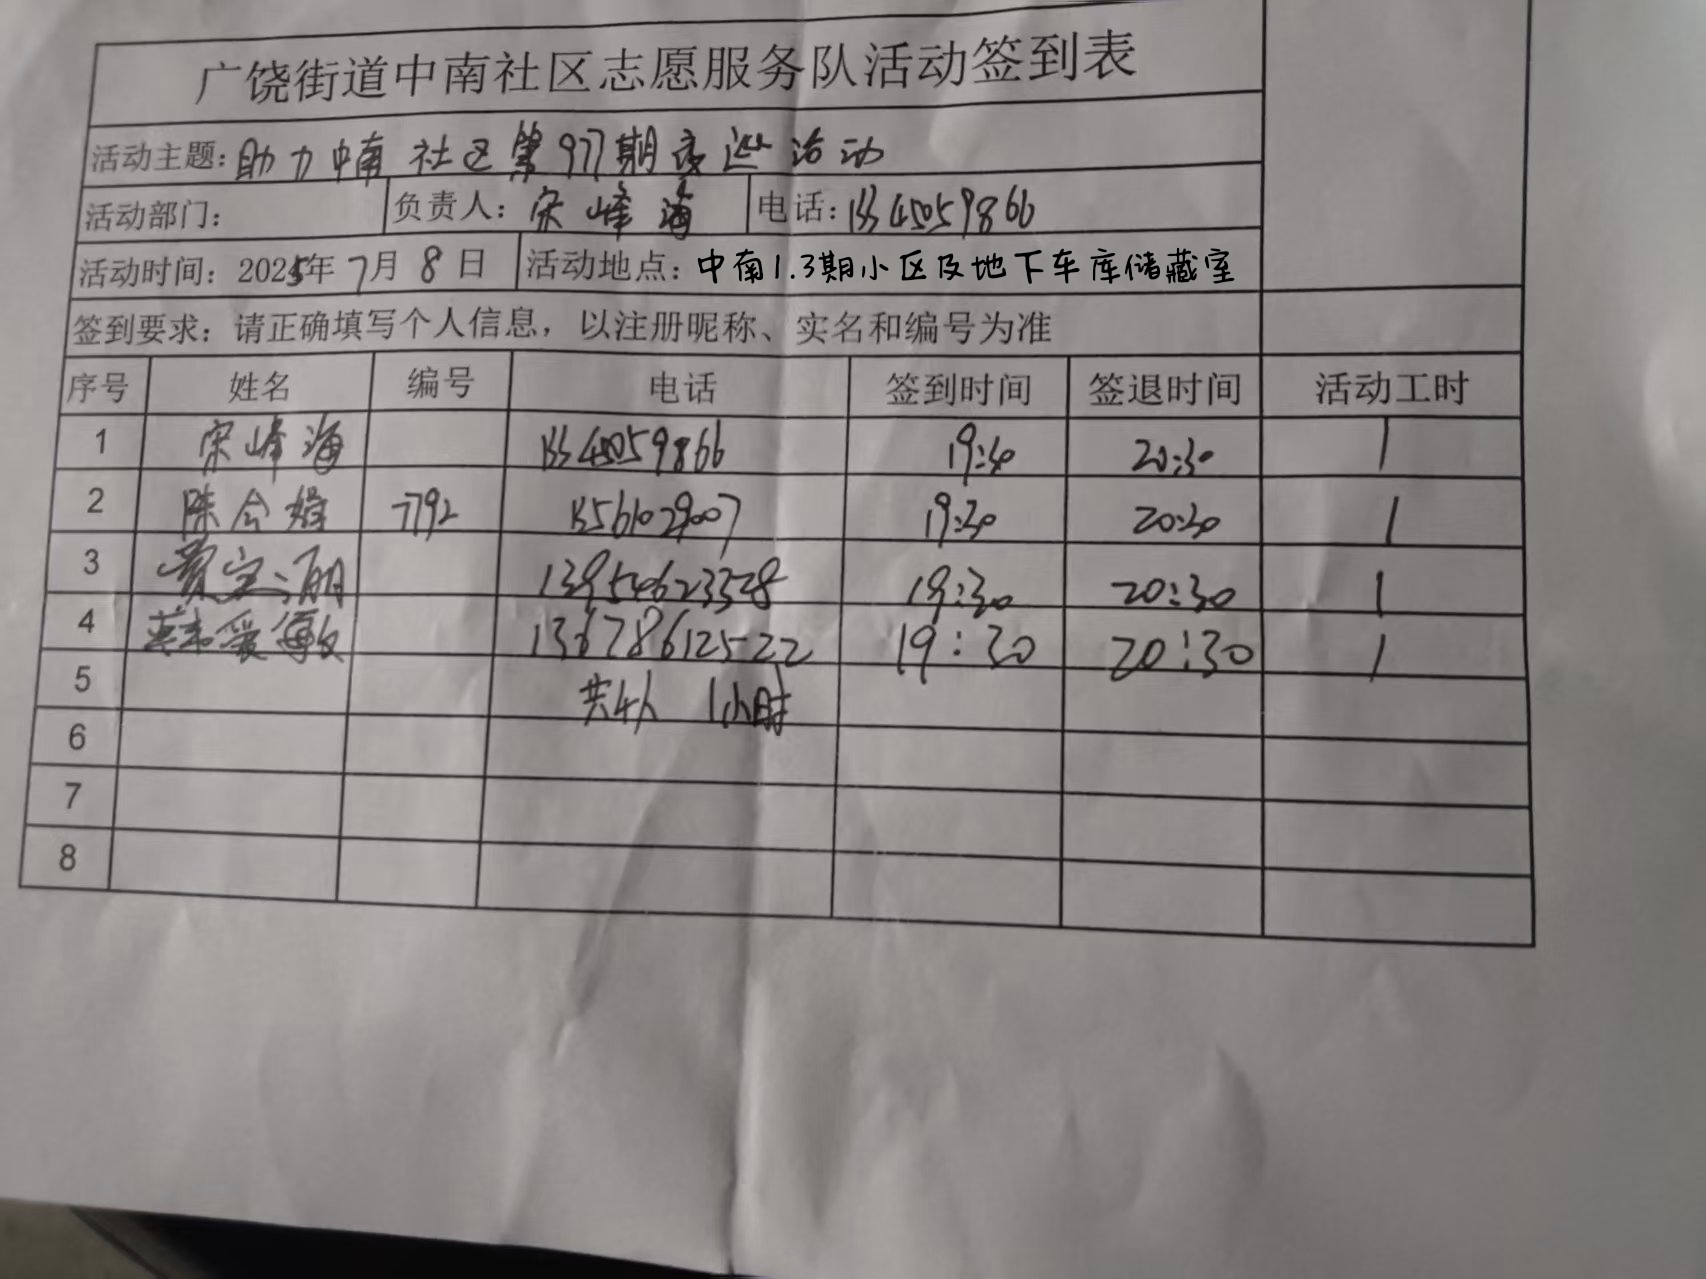 广饶街道中南社区志愿服务队活动签到表
活动主题：助力中南社区第977期夜巡活动
活动部门： 负责人：宋峰海 电话：
活动时间：2025年7月8日 活动地点：中南1.3期小区及地下车库储藏室
签到要求：请正确填写个人信息，以注册昵称、实名和编号为准
序号 姓名 编号 电话 签到时间 签退时间 活动工时
1 宋峰海 19:30 20:30 1
2 陈会 7792 15561029007 19:30 20:30 1
3 贾宝丽 13954623328 19:30 20:30 1
4 13678612522 19:30 20:30 1
5 共4人 1小时
6
7
8